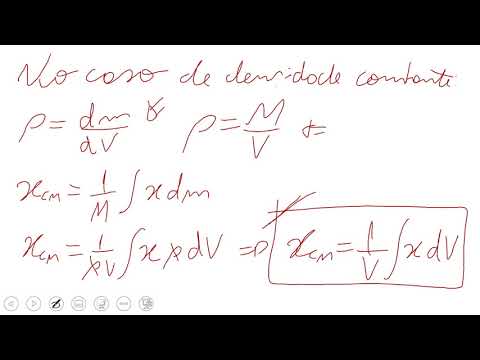 No caso de densidade constante
ρ = dm/dV & ρ = M/V
x_CM = 1/M ∫ x dm
x_CM = 1/(ρV) ∫ x ρ dV ⇒ x_CM = 1/V ∫ x dV